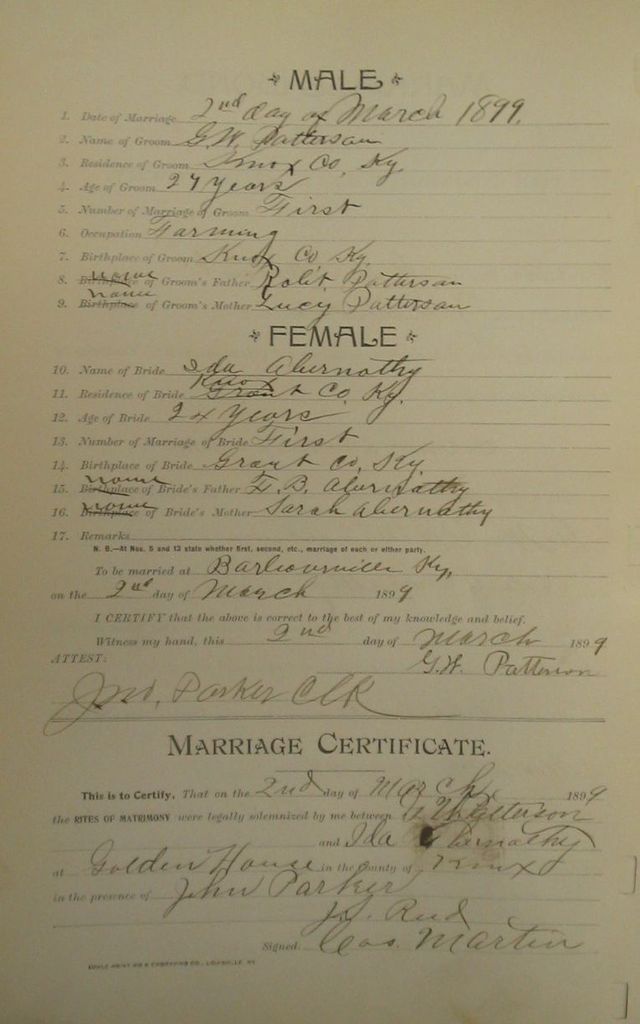 MALE
1. Date of Marriage 2nd day of March 1899.
2. Name of Groom G.W. Patterson
3. Residence of Groom Knox Co, Ky.
4. Age of Groom 27 years
5. Number of Marriage of Groom First
6. Occupation Farming
7. Birthplace of Groom Knox Co Ky.
8. Birthplace name of Groom's Father Robt. Patterson
9. Birthplace name of Groom's Mother Lucy Patterson
FEMALE
10. Name of Bride Ida Abernathy
11. Residence of Bride Grant Knox Co, Ky.
12. Age of Bride 24 years
13. Number of Marriage of Bride First
14. Birthplace of Bride Grant Co, Ky.
15. Birthplace name of Bride's Father F. B. Abernathy
16. Birthplace name of Bride's Mother Sarah Abernathy
17. Remarks
N. B.—At Nos. 5 and 13 state whether first, second, etc., marriage of each or either party.
To be married at Barbourville Ky,
on the 2nd day of March 1899
I CERTIFY that the above is correct to the best of my knowledge and belief.
Witness my hand, this 2nd day of March 1899
ATTEST: G.W. Patterson
Jno, Parker Clk
MARRIAGE CERTIFICATE.
This is to Certify, That on the 2nd day of March, 1899
the RITES OF MATRIMONY were legally solemnized by me between Patterson
and Ida Abernathy
at Golden House in the County of Knox
in the presence of John Parker
Signed, Martin